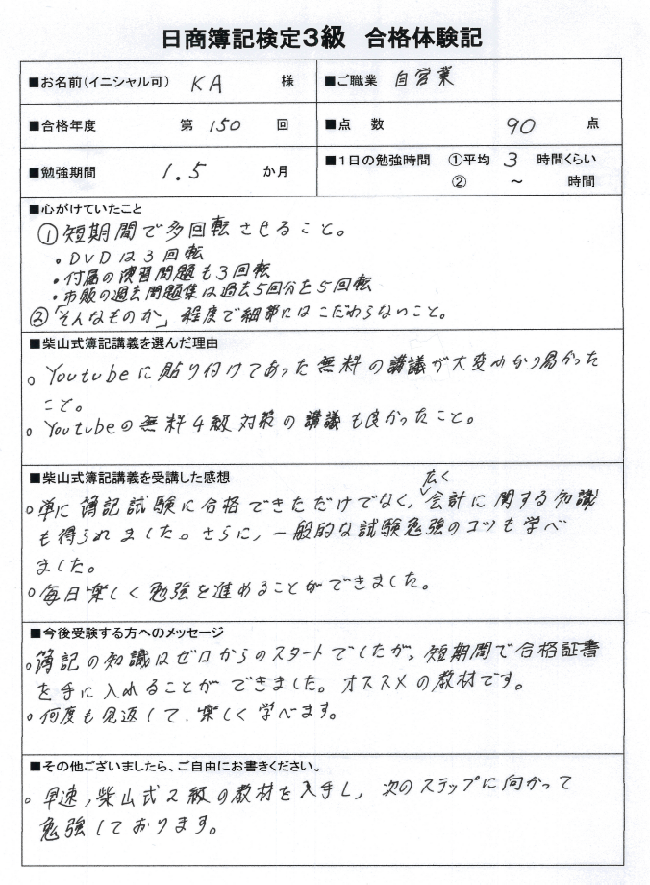 日商簿記検定3級　合格体験記
■お名前(イニシャル可)　KA　様
■ご職業　自営業
■合格年度　第　150　回
■点　数　90　点
■勉強期間　1.5　か月
■1日の勉強時間　①平均　3　時間くらい
②　～　時間
■心がけていたこと
①短期間で多回転させること。
・DVDは3回転
・付属の演習問題も3回転
・市販の過去問題集は過去5回分を5回転
②「そんなものか」程度で細事にはこだわらないこと。
■柴山式簿記講義を選んだ理由
○Youtubeに貼り付けてあった無料の講議が大変分かり易かった
こと。
○Youtubeの無料4級対策の講議も良かったこと。
■柴山式簿記講義を受講した感想
○単に簿記試験に合格できただけでなく、広く会計に関する知識
も得られました。さらに、一般的な試験勉強のコツも学べ
ました。
○毎日楽しく勉強を進めることができました。
■今後受験する方へのメッセージ
○簿記の知識はゼロからのスタートでしたが、短期間で合格証書
を手に入れることができました。オススメの教材です。
○何度も見返して楽しく学べます。
■その他ございましたら、ご自由にお書きください。
○早速、柴山式2級の教材を入手し、次のステップに向かって
勉強しております。